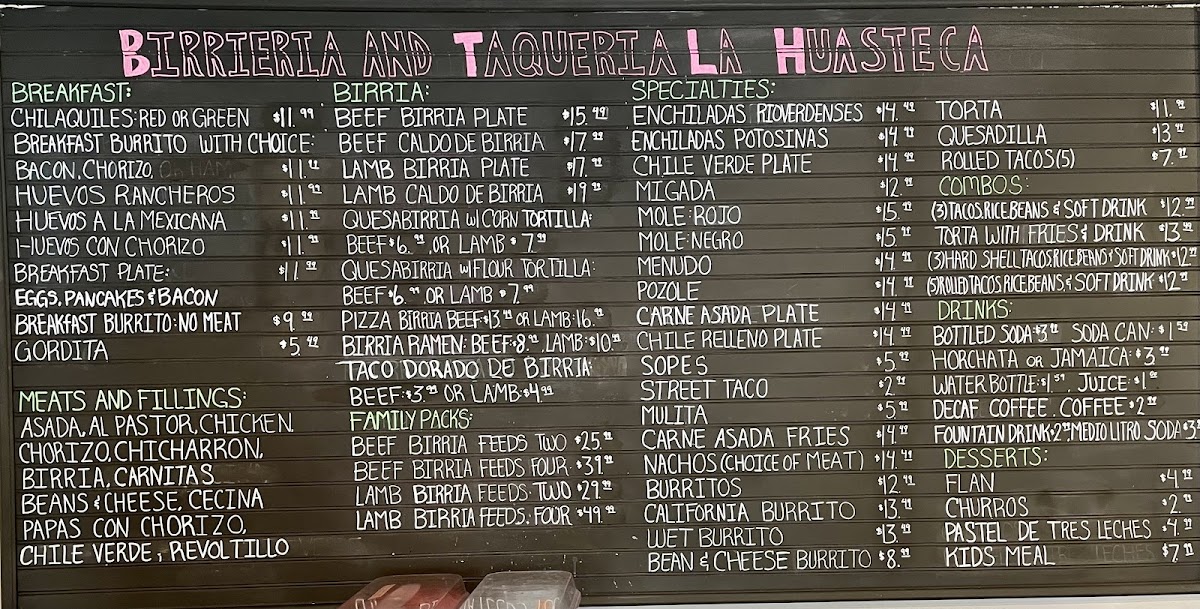 BIRRIERIA AND TAQUERIA LA HUASTECA
BREAKFAST:
CHILAQUILES: RED OR GREEN $11.99
BREAKFAST BURRITO WITH CHOICE:
BACON, CHORIZO, OR HAM $11.99
HUEVOS RANCHEROS $11.99
HUEVOS A LA MEXICANA $11.99
HUEVOS CON CHORIZO $11.99
BREAKFAST PLATE: $11.99
EGGS, PANCAKES & BACON
BREAKFAST BURRITO: NO MEAT $9.99
GORDITA $5.99
MEATS AND FILLINGS:
ASADA, AL PASTOR, CHICKEN
CHORIZO, CHICHARRON,
BIRRIA, CARNITAS
BEANS & CHEESE, CECINA
PAPAS CON CHORIZO,
CHILE VERDE, REVOLTILLO
BIRRIA:
BEEF BIRRIA PLATE $15.49
BEEF CALDO DE BIRRIA $17.99
LAMB BIRRIA PLATE $17.99
LAMB CALDO DE BIRRIA $19.99
QUESABIRRIA W/ CORN TORTILLA:
BEEF $6.99 OR LAMB $7.99
QUESABIRRIA W/ FLOUR TORTILLA:
BEEF $6.99 OR LAMB $7.99
PIZZA BIRRIA BEEF $13.99 OR LAMB: 16.99
BIRRIA RAMEN: BEEF: $8.99 LAMB: $10.99
TACO DORADO DE BIRRIA:
BEEF: $3.99 OR LAMB: $4.99
FAMILY PACKS:
BEEF BIRRIA FEEDS TWO $25.99
BEEF BIRRIA FEEDS FOUR $39.99
LAMB BIRRIA FEEDS TWO $29.99
LAMB BIRRIA FEEDS FOUR $49.99
SPECIALTIES:
ENCHILADAS RIOVERDENSES $14.49
ENCHILADAS POTOSINAS $14.99
CHILE VERDE PLATE $14.99
MIGADA $12.99
MOLE: ROJO $15.99
MOLE: NEGRO $15.99
MENUDO $14.99
POZOLE $14.99
CARNE ASADA PLATE $14.49
CHILE RELLENO PLATE $14.99
SOPES $5.99
STREET TACO $2.99
MULITA $5.99
CARNE ASADA FRIES $14.99
NACHOS (CHOICE OF MEAT) $14.49
BURRITOS $12.49
CALIFORNIA BURRITO $13.49
WET BURRITO $13.99
BEAN & CHEESE BURRITO $8.99
TORTA $11.99
QUESADILLA $13.99
ROLLED TACOS (5) $7.99
COMBOS:
(3) TACOS, RICE, BEANS & SOFT DRINK $12.99
TORTA WITH FRIES & DRINK $13.99
(3) HARD SHELL TACOS, RICE, BEANS & SOFT DRINK $12.99
(5) ROLLED TACOS, RICE, BEANS & SOFT DRINK $12.99
DRINKS:
BOTTLED SODA $3.99 SODA CAN: $1.50
HORCHATA OR JAMAICA: $3.99
WATER BOTTLE: $1.59. JUICE: $1.99
DECAF COFFEE. COFFEE $2.99
FOUNTAIN DRINK $2.99 MEDIO LITRO SODA $3
DESSERTS:
FLAN $4.99
CHURROS $2.99
PASTEL DE TRES LECHES $4.99
KIDS MEAL $7.99